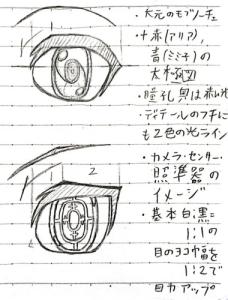 ・次元のモブノーチェ
・十赤(アリア)、
青(ミミ子)の
太極図
・瞳孔奥は赤い光
・ディテールのフチに
も2色の光ライン
・カメラ・センター・
照準器の
イメージ
・基本白:黒=
1:1の
目のヨコ幅を
1:2で
目力アップ
2